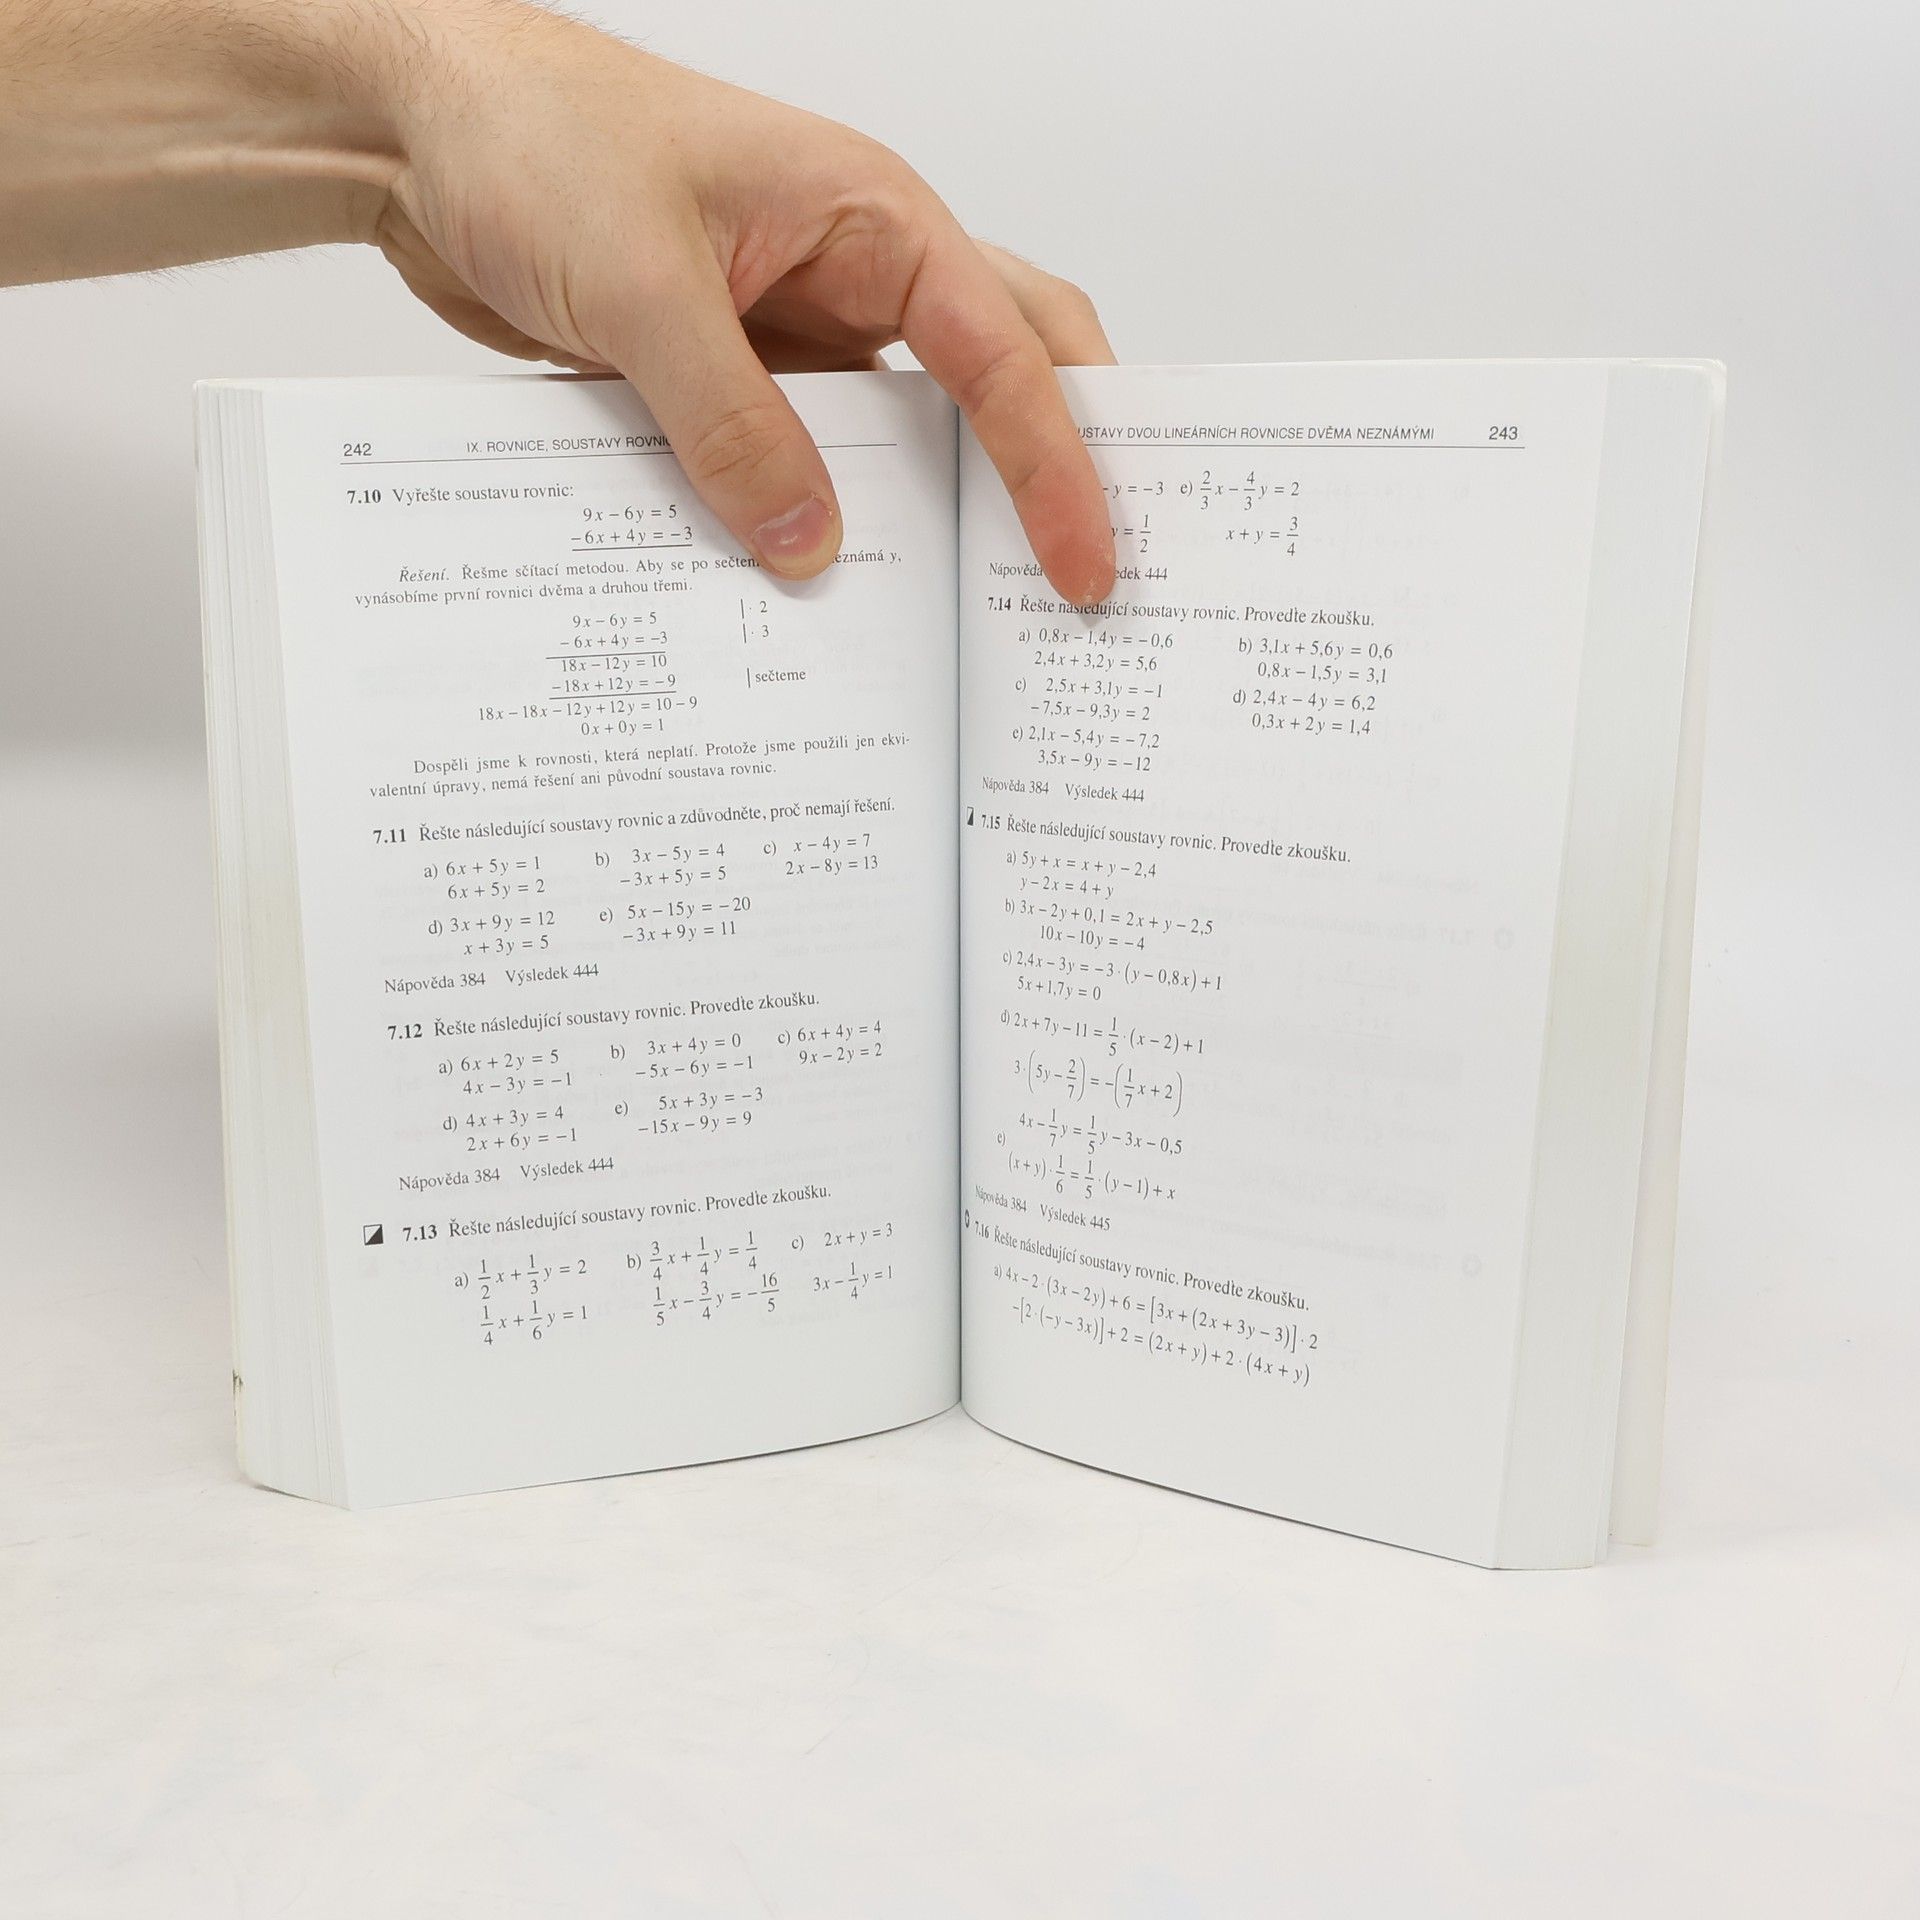 242 IX. ROVNICE, SOUSTAVY
7.10 Vyřešte soustavu rovnic:
9x – 6y = 5
– 6x + 4y = – 3
Řešení. Řešme sčítací metodou. Aby se po y,
vynásobíme první rovnici dvěma a druhou třemi.
9x – 6y = 5 | · 2
– 6x + 4y = –3 | · 3
18x – 12y = 10
– 18x + 12y = – 9 | sečteme
18x – 18x – 12y + 12y = 10 – 9
0x + 0y = 1
Dospěli jsme k rovnosti, která neplatí. Protože jsme použili jen ekvi-
valentní úpravy, nemá řešení ani původní soustava rovnic.
7.11 Řešte následující soustavy rovnic a zdůvodněte, proč nemají řešení.
a) 6x + 5y = 1 b) 3x – 5y = 4 c) x – 4y = 7
6x + 5y = 2 – 3x + 5y = 5 2x – 8y = 13
d) 3x + 9y = 12 e) 5x – 15y = – 20
x + 3y = 5 – 3x + 9y = 11
Nápověda 384 Výsledek 444
7.12 Řešte následující soustavy rovnic. Proveďte zkoušku.
a) 6x + 2y = 5 b) 3x + 4y = 0 c) 6x + 4y = 4
4x – 3y = –1 – 5x – 6y = –1 9x – 2y = 2
d) 4x + 3y = 4 e) 5x + 3y = – 3
2x + 6y = –1 – 15x – 9y = 9
Nápověda 384 Výsledek 444
7.13 Řešte následující soustavy rovnic. Proveďte zkoušku.
a) 1/2 x + 1/3 y = 2 b) 3/4 x + 1/4 y = 1/4 c) 2x + y = 3
1/4 x + 1/6 y = 1 1/5 x – 3/4 y = – 16/5 3x – 1/4 y = 1
DVOU LINEÁRNÍCH ROVNICSE DVĚMA NEZNÁMÝMI 243
y = – 3 e) 2/3 x – 4/3 y = 2
= 1/2 x + y = 3/4
Nápověda 444
7.14 Řešte následující soustavy rovnic. Proveďte zkoušku.
a) 0,8x – 1,4y = – 0,6 b) 3,1x + 5,6y = 0,6
2,4x + 3,2y = 5,6 0,8x – 1,5y = 3,1
c) 2,5x + 3,1y = –1 d) 2,4x – 4y = 6,2
– 7,5x – 9,3y = 2 0,3x + 2y = 1,4
e) 2,1x – 5,4y = – 7,2
3,5x – 9y = – 12
Nápověda 384 Výsledek 444
7.15 Řešte následující soustavy rovnic. Proveďte zkoušku.
a) 5y + x = x + y – 2,4
y – 2x = 4 + y
b) 3x – 2y + 0,1 = 2x + y – 2,5
10x – 10y = – 4
c) 2,4x – 3y = – 3 · (y – 0,8x) + 1
5x + 1,7y = 0
d) 2x + 7y – 11 = 1/5 · (x – 2) + 1
3 · (5y – 2/7) = – (1/7 x + 2)
4x – 1/7 y = 1/5 y – 3x – 0,5
e)
(x + y) · 1/6 = 1/5 · (y – 1) + x
Nápověda 384 Výsledek 445
7.16 Řešte následující soustavy rovnic. Proveďte zkoušku.
a) 4x – 2 · (3x – 2y) + 6 = [3x + (2x + 3y – 3)] · 2
– [2 · (– y – 3x)] + 2 = (2x + y) + 2 · (4x + y)